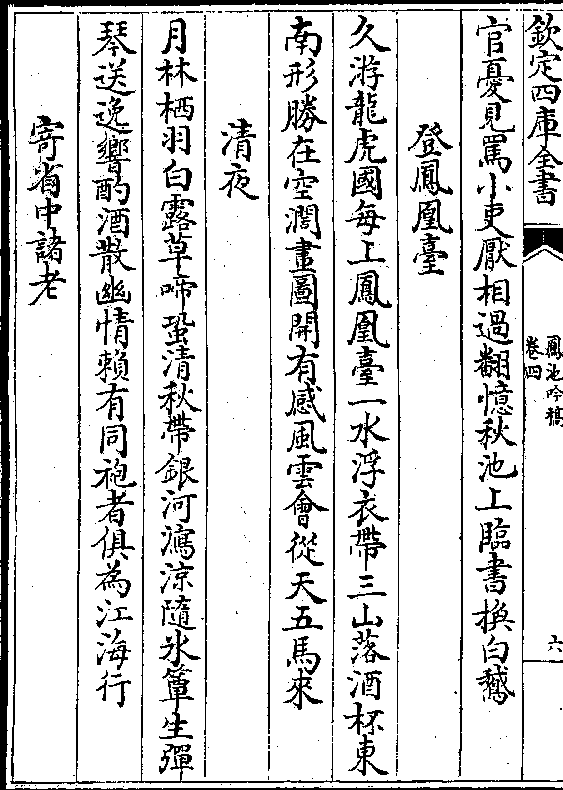 欽定四庫全書
鳳池吟稿
卷四
六
官憂見罵小吏厭相過翻憶秋池上臨書換白鵝
登鳳凰臺
久游龍虎國每上鳳凰臺一水浮衣帶三山落酒杯東
南形勝在空濶畫圖開有感風雲會從天五馬來
清夜
月林栖羽白露草啼蛩清秋帶銀河瀉涼隨氷簟生彈
琴送逸響酌酒散幽情賴有同袍者俱為江海行
寄省中諸老